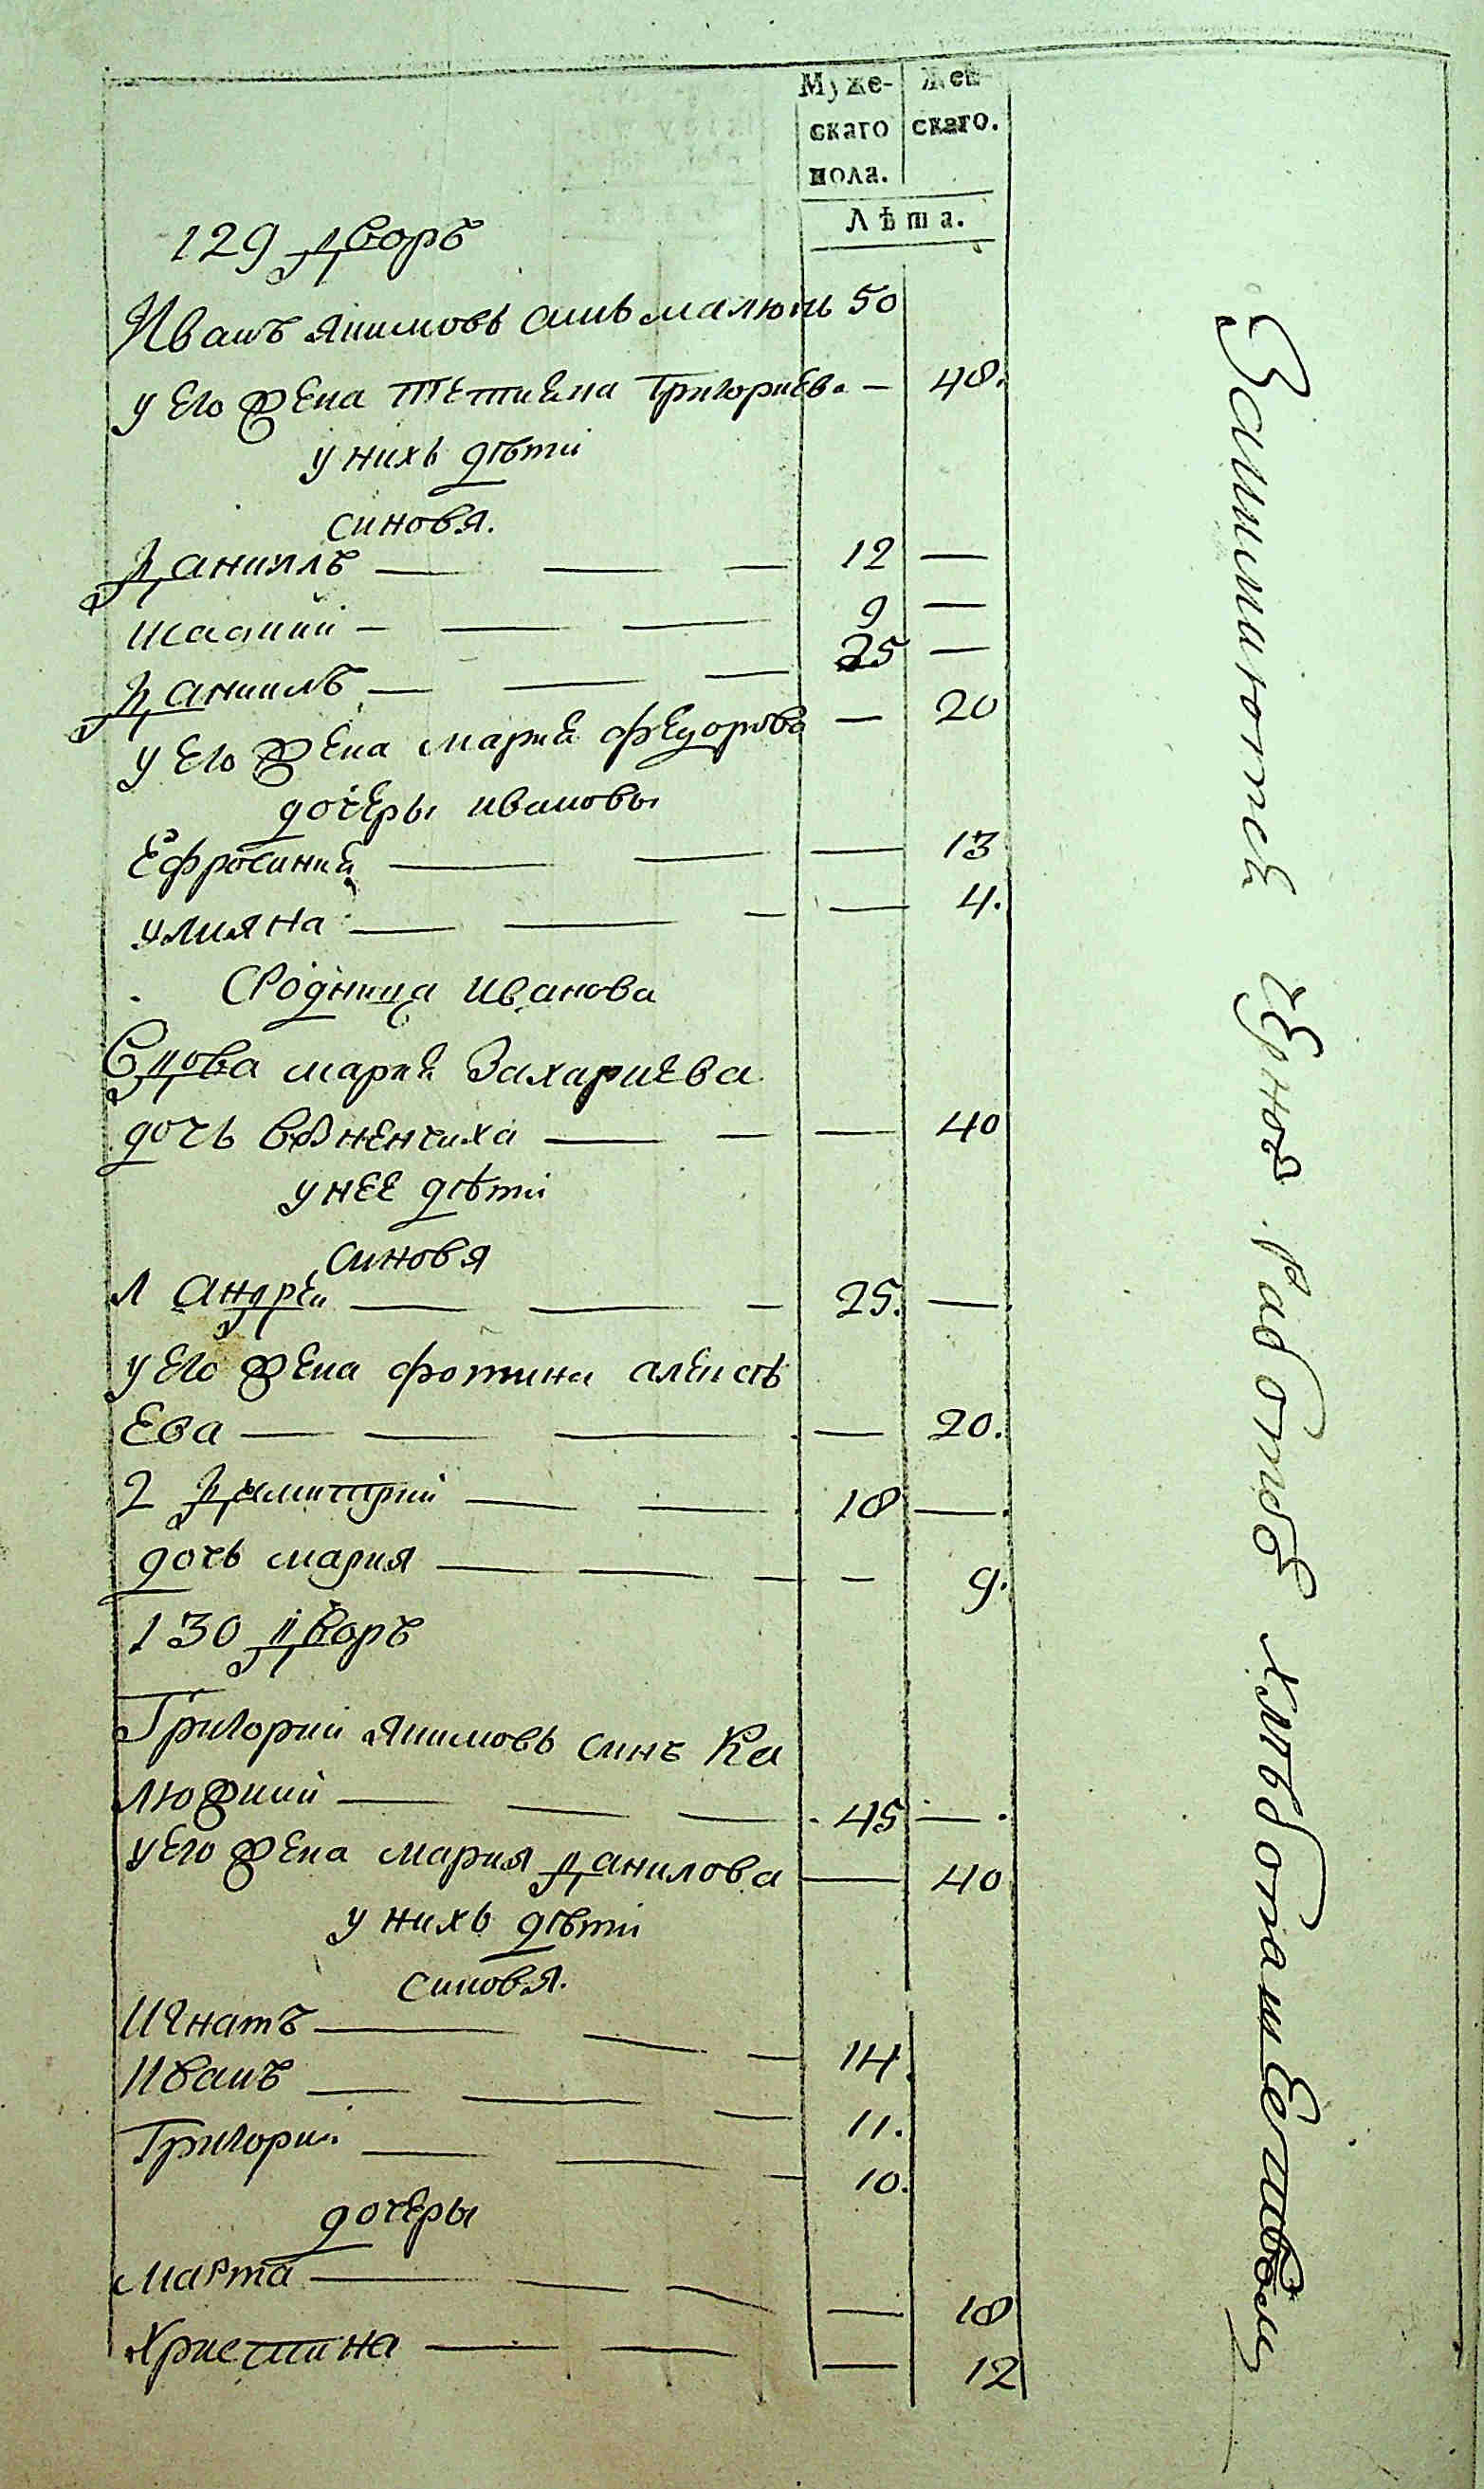 Муже- Жен-
скаго скаго.
пола.
Лѣта.
129 дворъ
Иванъ Якимовъ синъ малюга 50
у Его жена Тетияна Григориева — 48.
у нихъ дѣти
синовя.
Даниллъ — — — 12 —
— — — 9 —
Даниилъ — — — 25 —
у Его жена мария Федорова — 20
дочеры ивановы
Ефросиния — — — 13
улияна — — — — 4.
Сродница иванова
Вдова мария Захариева
дочь — — — 40
у нее дѣти
синовя
1 андрей — — — 25. —
у Его жена фотина алексѣ
Ева — — — — 20.
2 Димитрий — — 18 —
дочь мария — — — — 9.
130 дворъ
Григорий Якимовъ синъ Ка
люжний — — — 45 —
у Его жена мария данилова — 40
у нихъ дѣти
синовя.
Игнатъ — — — 14.
Иванъ — — — 11.
Григорий — — — 10.
дочеры
марта — — — — 18
Христина — — — 12
черной работѣ хлѣбопашественной